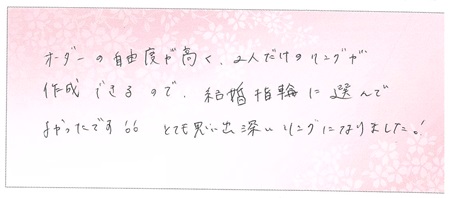 オーダーの自由度が高く、2人だけのリングが
作成できるので、結婚指輪に選んで
よかったです!! とても思い出深いリングになりました!